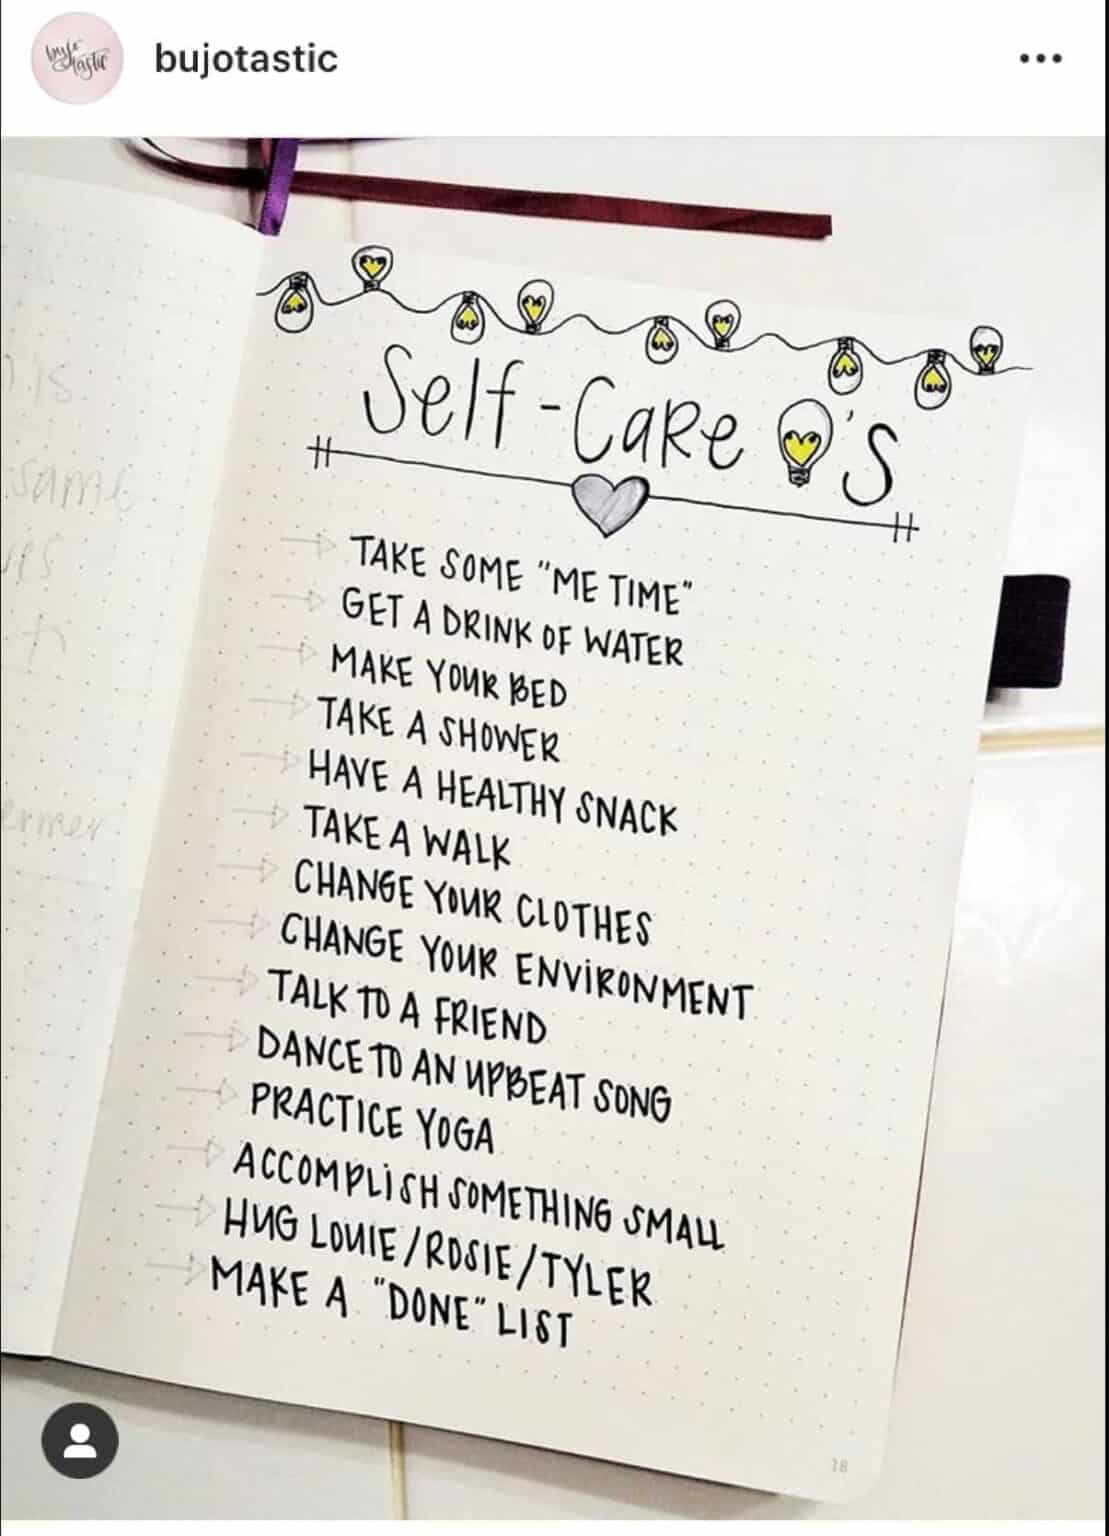 bujo tastic
bujotastic
is
same
ermer
Self-Care 's
TAKE SOME "ME TIME"
GET A DRINK OF WATER
MAKE YOUR BED
TAKE A SHOWER
HAVE A HEALTHY SNACK
TAKE A WALK
CHANGE YOUR CLOTHES
CHANGE YOUR ENVIRONMENT
TALK TO A FRIEND
DANCE TO AN UPBEAT SONG
PRACTICE YOGA
ACCOMPLISH SOMETHING SMALL
HUG LOUIE/ROSIE/TYLER
MAKE A "DONE" LIST
18